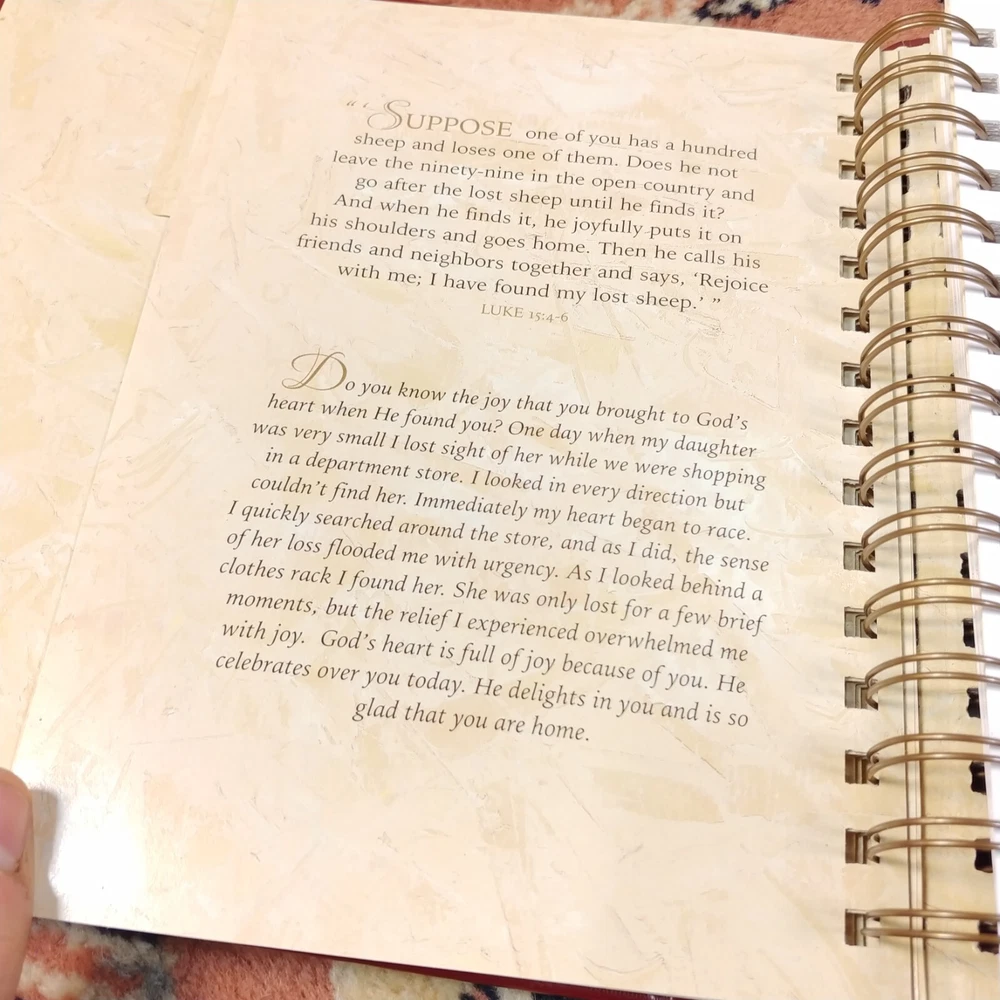 “ ‘SUPPOSE one of you has a hundred
sheep and loses one of them. Does he not
leave the ninety-nine in the open country and
go after the lost sheep until he finds it?
And when he finds it, he joyfully puts it on
his shoulders and goes home. Then he calls his
friends and neighbors together and says, ‘Rejoice
with me; I have found my lost sheep.’ ”
LUKE 15:4-6
Do you know the joy that you brought to God’s
heart when He found you? One day when my daughter
was very small I lost sight of her while we were shopping
in a department store. I looked in every direction but
couldn’t find her. Immediately my heart began to race.
I quickly searched around the store, and as I did, the sense
of her loss flooded me with urgency. As I looked behind a
clothes rack I found her. She was only lost for a few brief
moments, but the relief I experienced overwhelmed me
with joy. God’s heart is full of joy because of you. He
celebrates over you today. He delights in you and is so
glad that you are home.